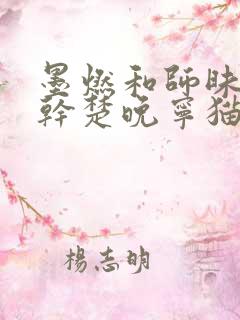 墨燃和師昧
幹楚晚寧貓
楊志明